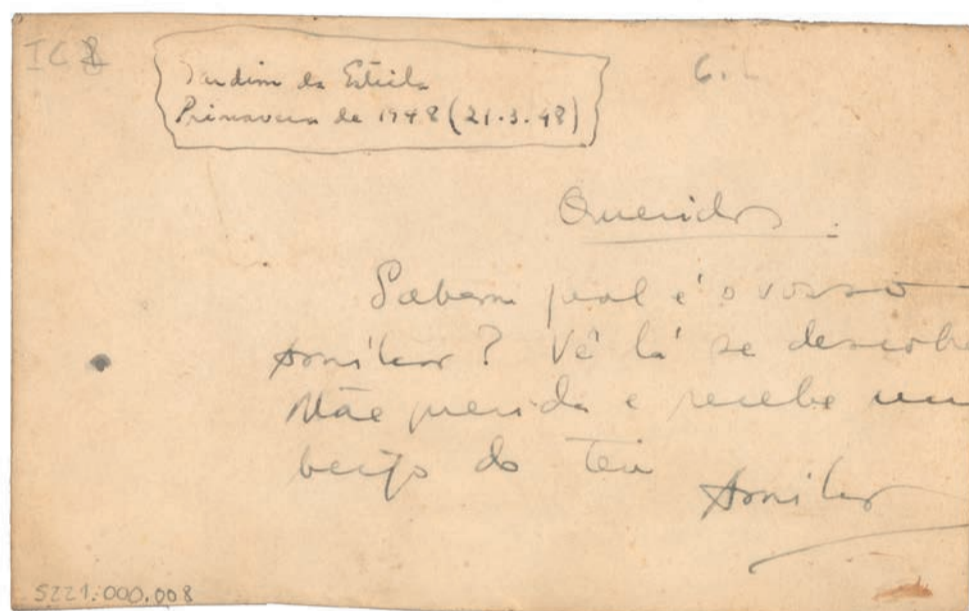 Jardim da Estrela
Primavera de 1948 (21.3.48)
Queridos
Sabem qual é o vosso
Amílcar? Vê lá se descobre
Mãe querida e recebe um
beijo do teu
Amílcar
5221.000.008